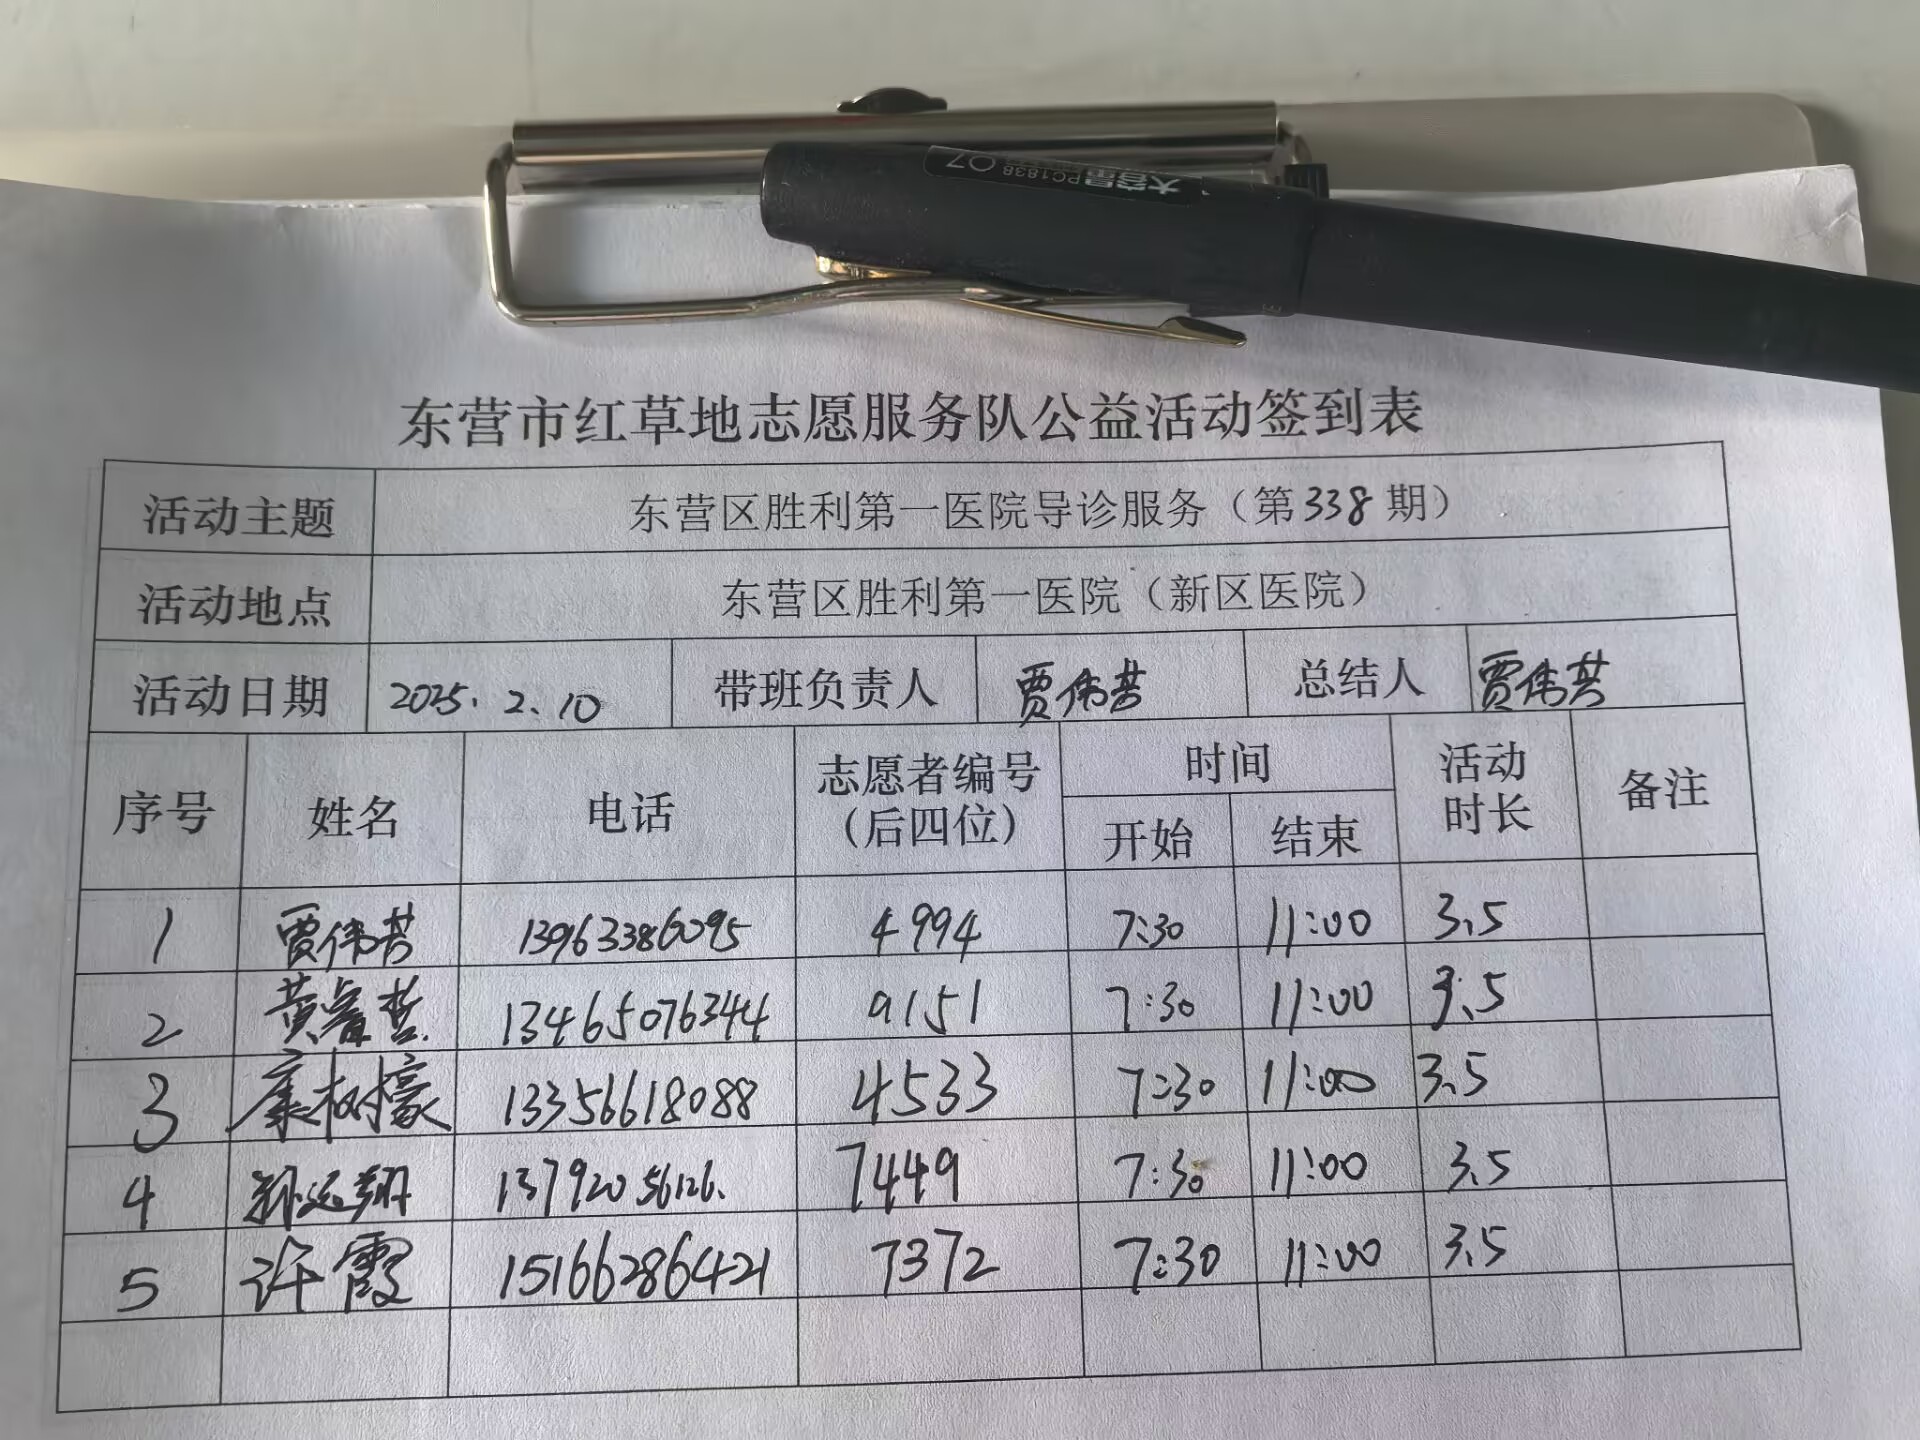 大容量 PC1838 07
东营市红草地志愿服务队公益活动签到表
活动主题 东营区胜利第一医院导诊服务（第338期）
活动地点 东营区胜利第一医院（新区医院）
活动日期 2025.2.10 带班负责人 贾伟芸 总结人 贾伟芸
序号 姓名 电话 志愿者编号（后四位） 时间 开始 结束 活动时长 备注
1 贾伟芸 13963386095 4994 7:30 11:00 3.5
2 黄睿哲 13465076344 9151 7:30 11:00 3.5
3 康树檬 13356618088 4533 7:30 11:00 3.5
4 孙远翔 13792056126. 7449 7:30 11:00 3.5
5 许霞 15166286421 7372 7:30 11:00 3.5